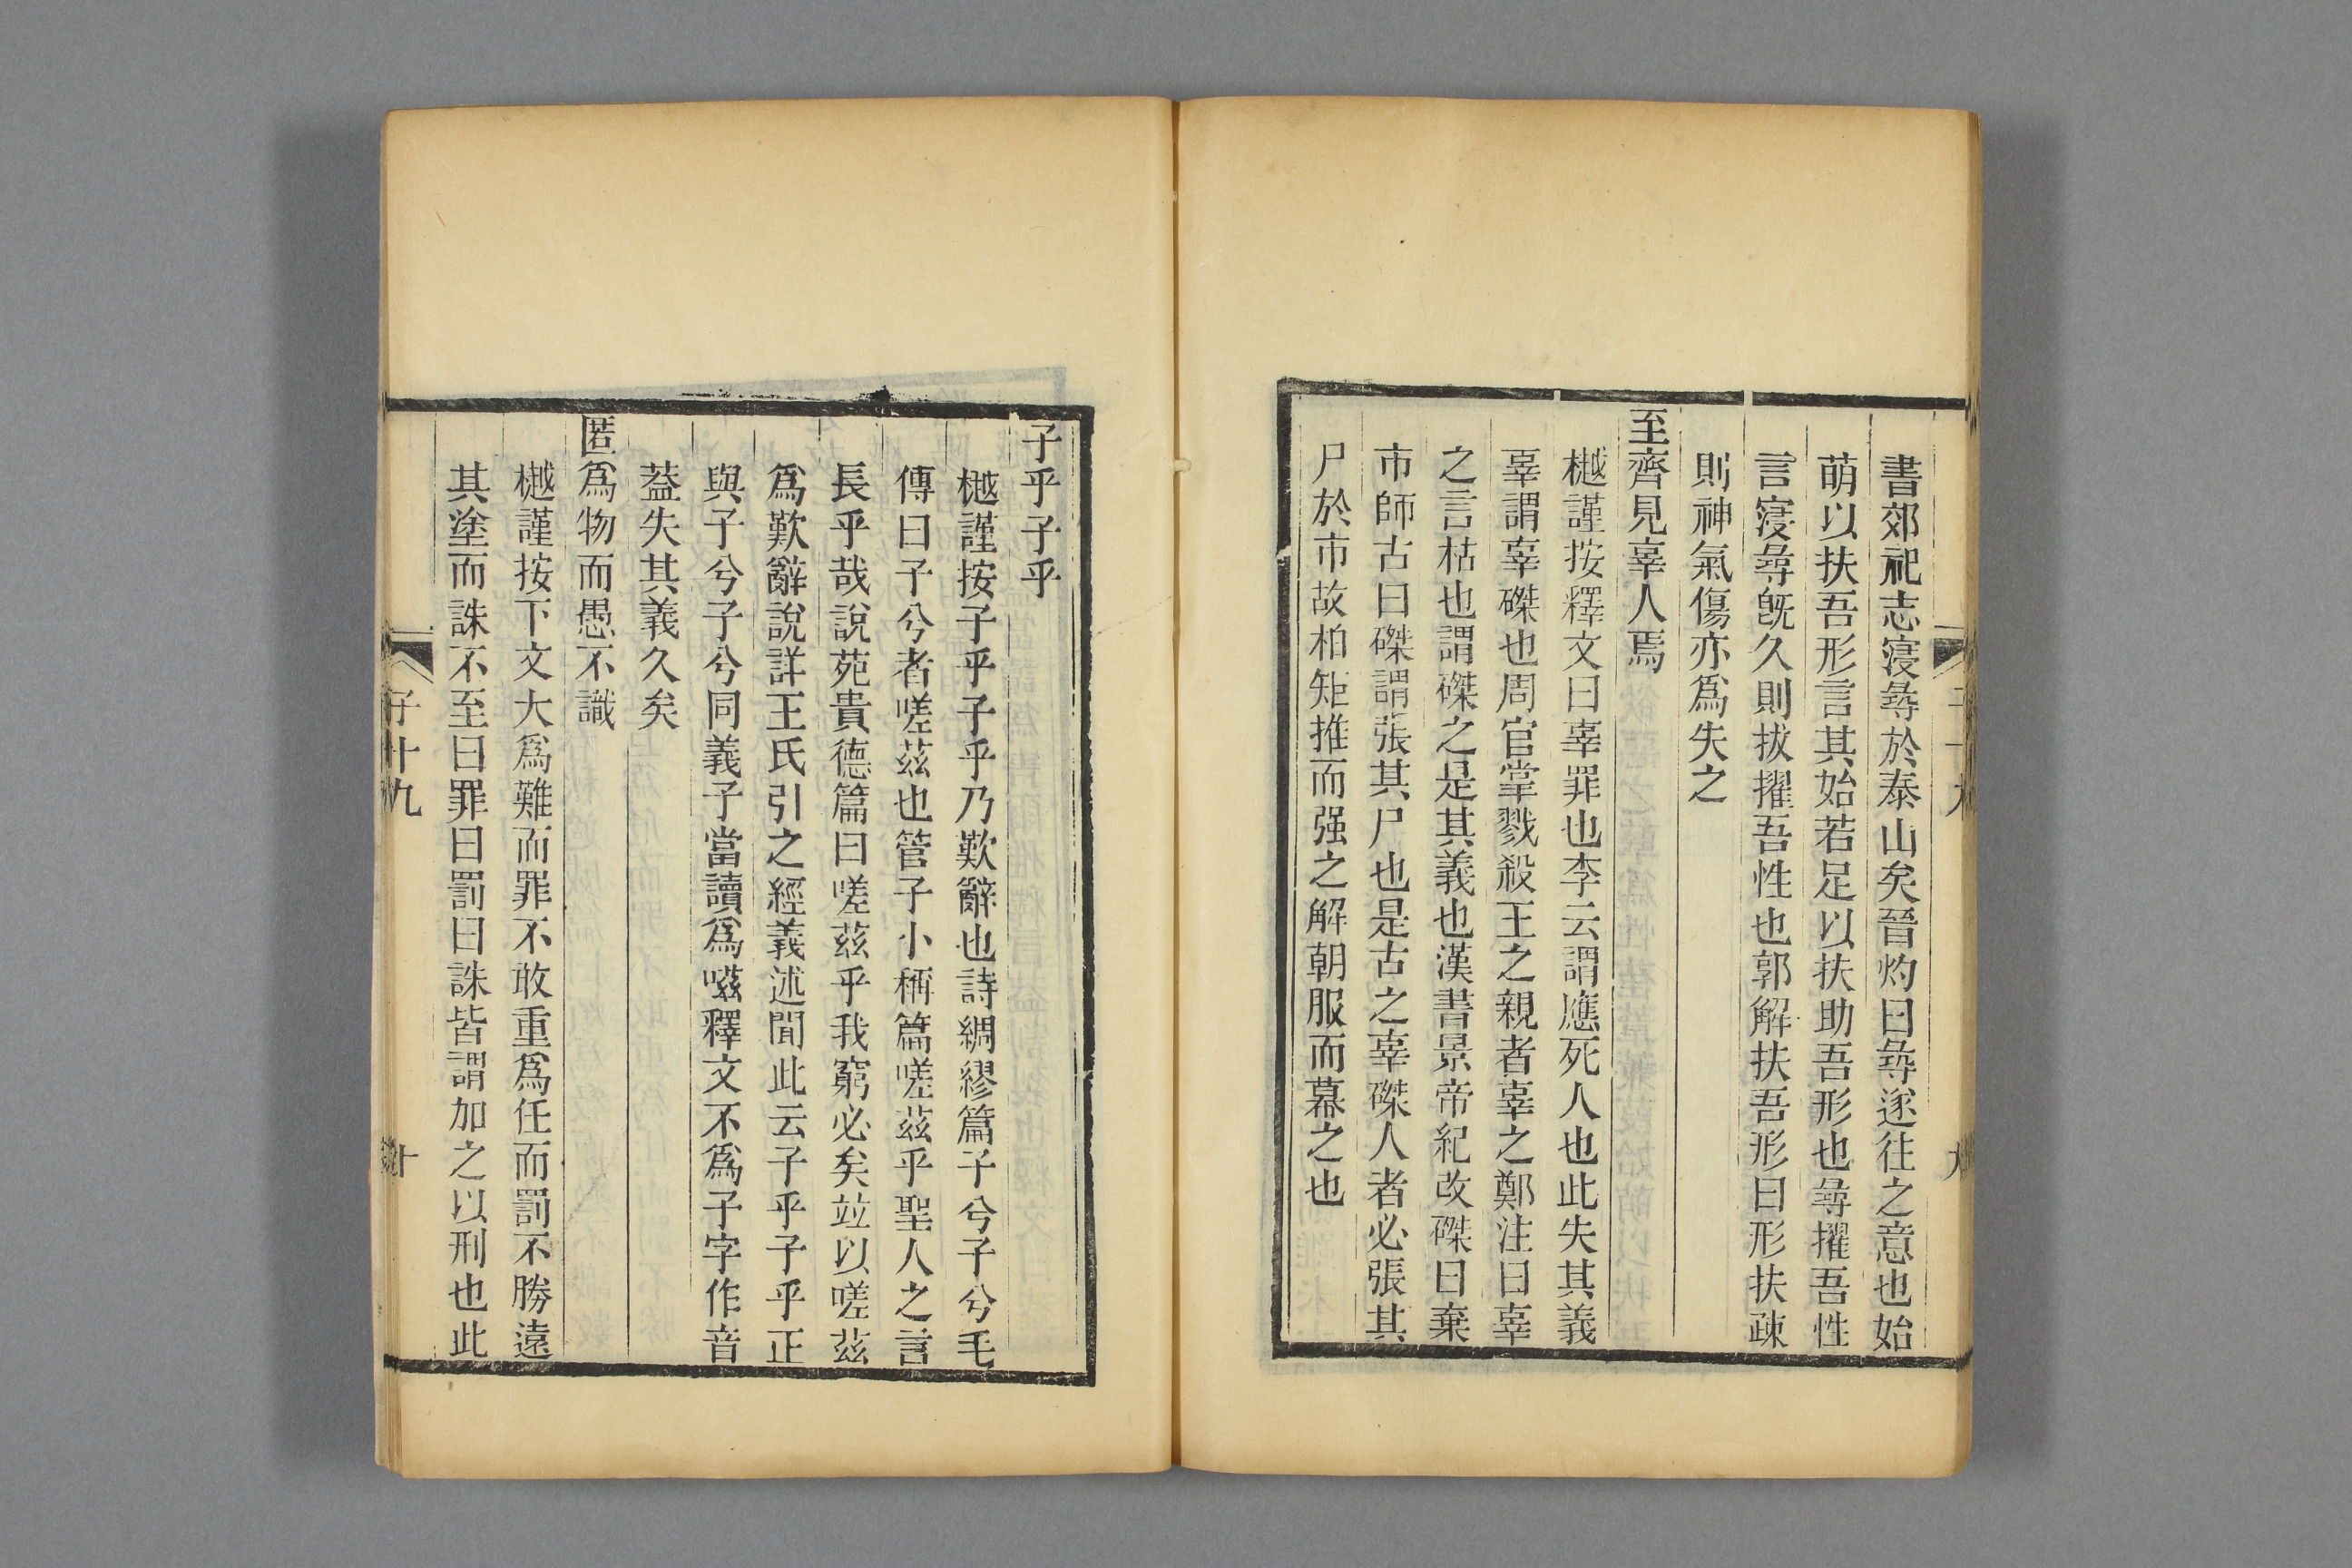 書郊祀志寖㝷於泰山矣晉灼曰㝷遂往之意也始
萌以扶吾形言其始若足以扶助吾形也㝷擢吾性
言寖㝷旣久則拔擢吾性也郭解扶吾形曰形扶疎
則神氣傷亦爲失之
至齊見辜人焉
樾謹按釋文曰辜罪也李云謂應死人也此失其義
辜謂辜磔也周官掌戮殺王之親者辜之鄭注曰辜
之言枯也謂磔之是其義也漢書景帝紀改磔曰棄
市師古曰磔謂張其尸也是古之辜磔人者必張其
尸於市故柏矩推而强之解朝服而幕之也
子乎子乎
樾謹按子乎子乎乃歎辭也詩綢繆篇子兮子兮毛
傳曰子兮者嗟茲也管子小稱篇嗟茲乎聖人之言
長乎哉說苑貴德篇曰嗟茲乎我窮必矣竝以嗟茲
爲歎辭說詳王氏引之經義述聞此云子乎子乎正
與子兮子兮同義子當讀爲嗞釋文不爲子字作音
葢失其義久矣
匿爲物而愚不識
樾謹按下文大爲難而罪不敢重爲任而罰不勝遠
其塗而誅不至曰罪曰罰曰誅皆謂加之以刑也此
子十九
十